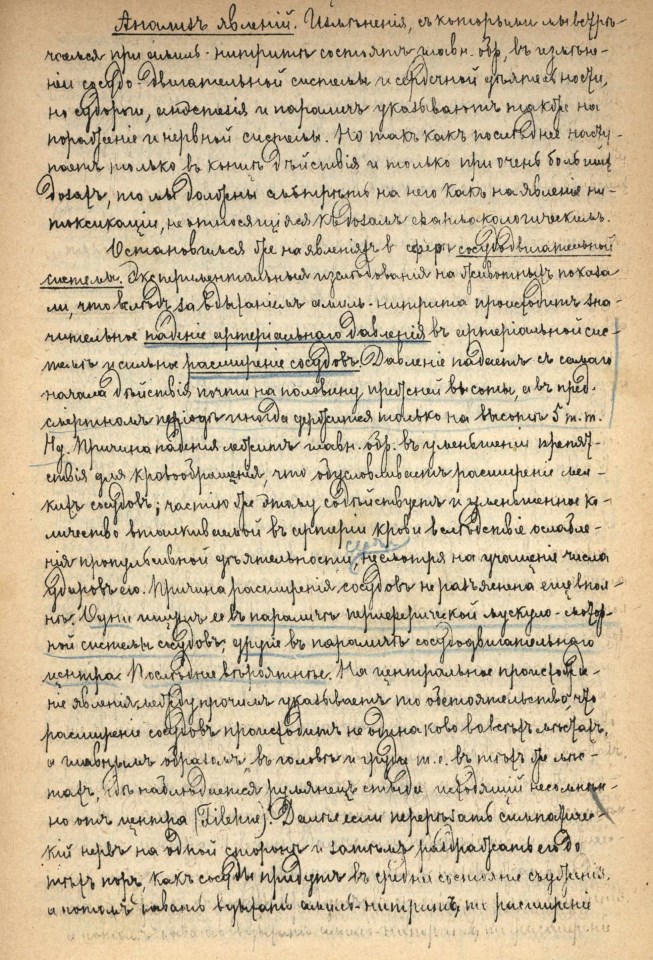 Анализъ явленій. Измѣненія, съ которыми мы встрѣ-
чаемся при амилъ-нитритѣ состоятъ главн. обр. въ измѣне-
ніи сосудо-двигательной системы и сердечной дѣятельности,
но судороги, анестезія и параличъ указываютъ также на
пораженіе и нервной системы. Но такъ какъ послѣднее насту-
паетъ только въ концѣ дѣйствія и только при очень большихъ
дозахъ, то мы должны смотрѣть на него какъ на явленія ин-
токсикаціи, не относящіяся къ дозамъ фармакологическимъ.
Остановимся же на явленіяхъ въ сферѣ сосудодвигательной
системы. Экспериментальныя изслѣдованія на животныхъ показа-
ли, что вслѣдъ за вдыханіемъ амилъ-нитрита происходитъ зна-
чительное паденіе артеріальнаго давленія въ артеріальной сис-
темѣ и сильное расширеніе сосудовъ. Давленіе падаетъ съ самаго
начала дѣйствія почти на половину прежней высоты, а въ пред-
смертномъ періодѣ иногда держится только на высотѣ 5 m.m.
Hg. Причина паденія лежитъ главн. обр. въ уменьшеніи препят-
ствія для кровообращенія, что обусловливаетъ расширеніе мел-
кихъ сосудовъ; частію же этому содѣйствуетъ и уменьшенное ко-
личество вталкиваемой въ артеріи крови вслѣдствіе ослабле-
нія пропульсивной дѣятельности, несмотря на учащеніе числа
ударовъ его. Причина расширенія сосудовъ не разъяснена еще впол-
нѣ. Одни ищутъ ее въ параличѣ периферической мускуло-мотор-
ной системы сосудовъ, другіе въ параличѣ сосудодвигательнаго
центра. Послѣднее вѣроятнѣе. На центральное происхожде-
ніе явленія между прочимъ указываетъ то обстоятельство, что
расширеніе сосудовъ происходитъ не одинаково во всѣхъ мѣстахъ,
а главнымъ образомъ въ головѣ и груди т.е. въ тѣхъ же мѣс-
тахъ, гдѣ наблюдается румянецъ стыда, исходящій несомнѣн-
но отъ центра (Filehne). Далѣе если перерѣзать симпатичес-
кій нервъ на одной сторонѣ и затѣмъ раздражать его до
тѣхъ поръ, какъ сосуды придутъ въ среднее состояніе съуженія,
а потомъ давать вдыхать амилъ-нитритъ, то расширеніе